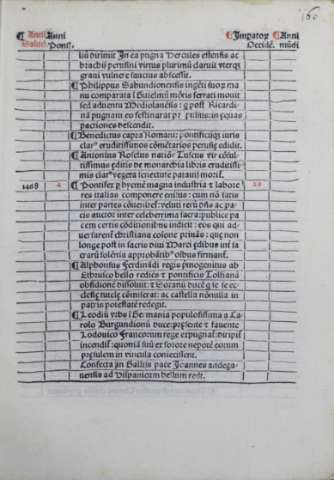 160
¶ Anni Anni
Salutis. Pont.
¶ Imperator. ¶ Anni
Occidē. mūdi
liū dirimit In ea pugna Hercules estensis ac
brachii perusini virtus plurimū claruit vterqȝ
graui vulnere saucius abscessit.
¶ Philippus Sabaudiensis ingēti suoꝝ ma
nu comparata i Guielmū mōtis ferrati mouit
sed aduentu Mediolanēsis: qͥ post Ricardi-
nā pugnam eo festinarat in equas
pactiones descendit.
¶ Benedictus capra Romani: pontificijqȝ iuris
clarꝰ eruditissimos cōmētarios perusie edidit.
¶ Antonius Rosellus natiōe Tuscus vir cōsul-
tissimus editis de monarchia libris eruditissi-
mis clarꝰ vegeta senectute pataui morit̄.
1468 4 ¶ Pontifex p hyemē magna industria τ labore 28
res italias componere enixus: cum nō satis
inter partes cōueniret: veluti rerū dn̄s ac pa-
cis auctor inter celeberrima sacra: publice pa
cem certis cōditionibus indixit: eos qui ad-
uersarent̄ christiana
longe post in sacris diui Marci edibus inf sa
crarū solēnia approbātibꝰ oībus firmant̄.
¶ Alphonsus Ferdinādi regis pͥmogenitus ab
Ethrusco bello rediēs τ pontificio Tolfianā
obsidionē dissoluit: τ Soranū ducē qͥ se ec
clesię tutelę cōmiserat: ac castella nōnulla in
patris potestatē redegit.
¶ Leodiū vrbs Germania populosissima a Ca-
rolo Burgundionū duce: presente τ fauente
Lodouico Francorum rege expugnat̄: diripit̄
incendit̄: quoniā suū ex sorore nepotē eorum
presulem in vincula coniecissent.
Confecta in Gallijs pace Joannes andega-
uensis ad Hispaniense bellum redit.